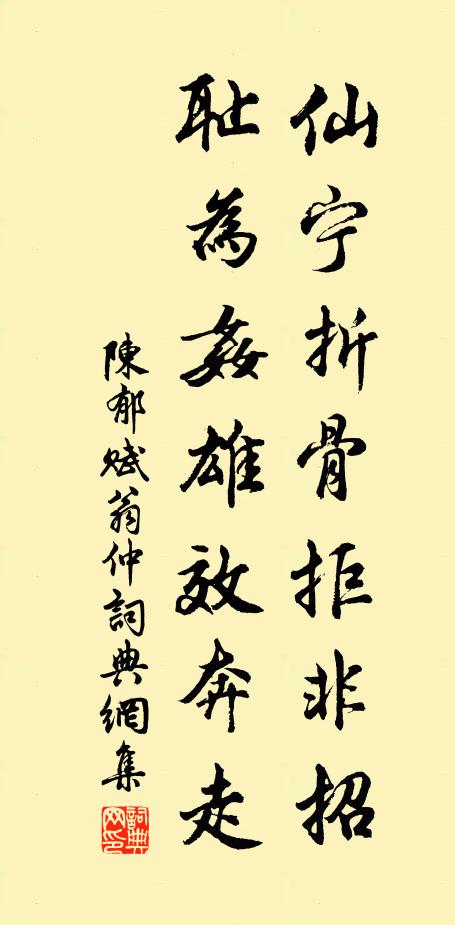 仙宁折骨拒非招
耻為姦雄效奔走
陳郁賦翁仲詞典網集
詞典网印